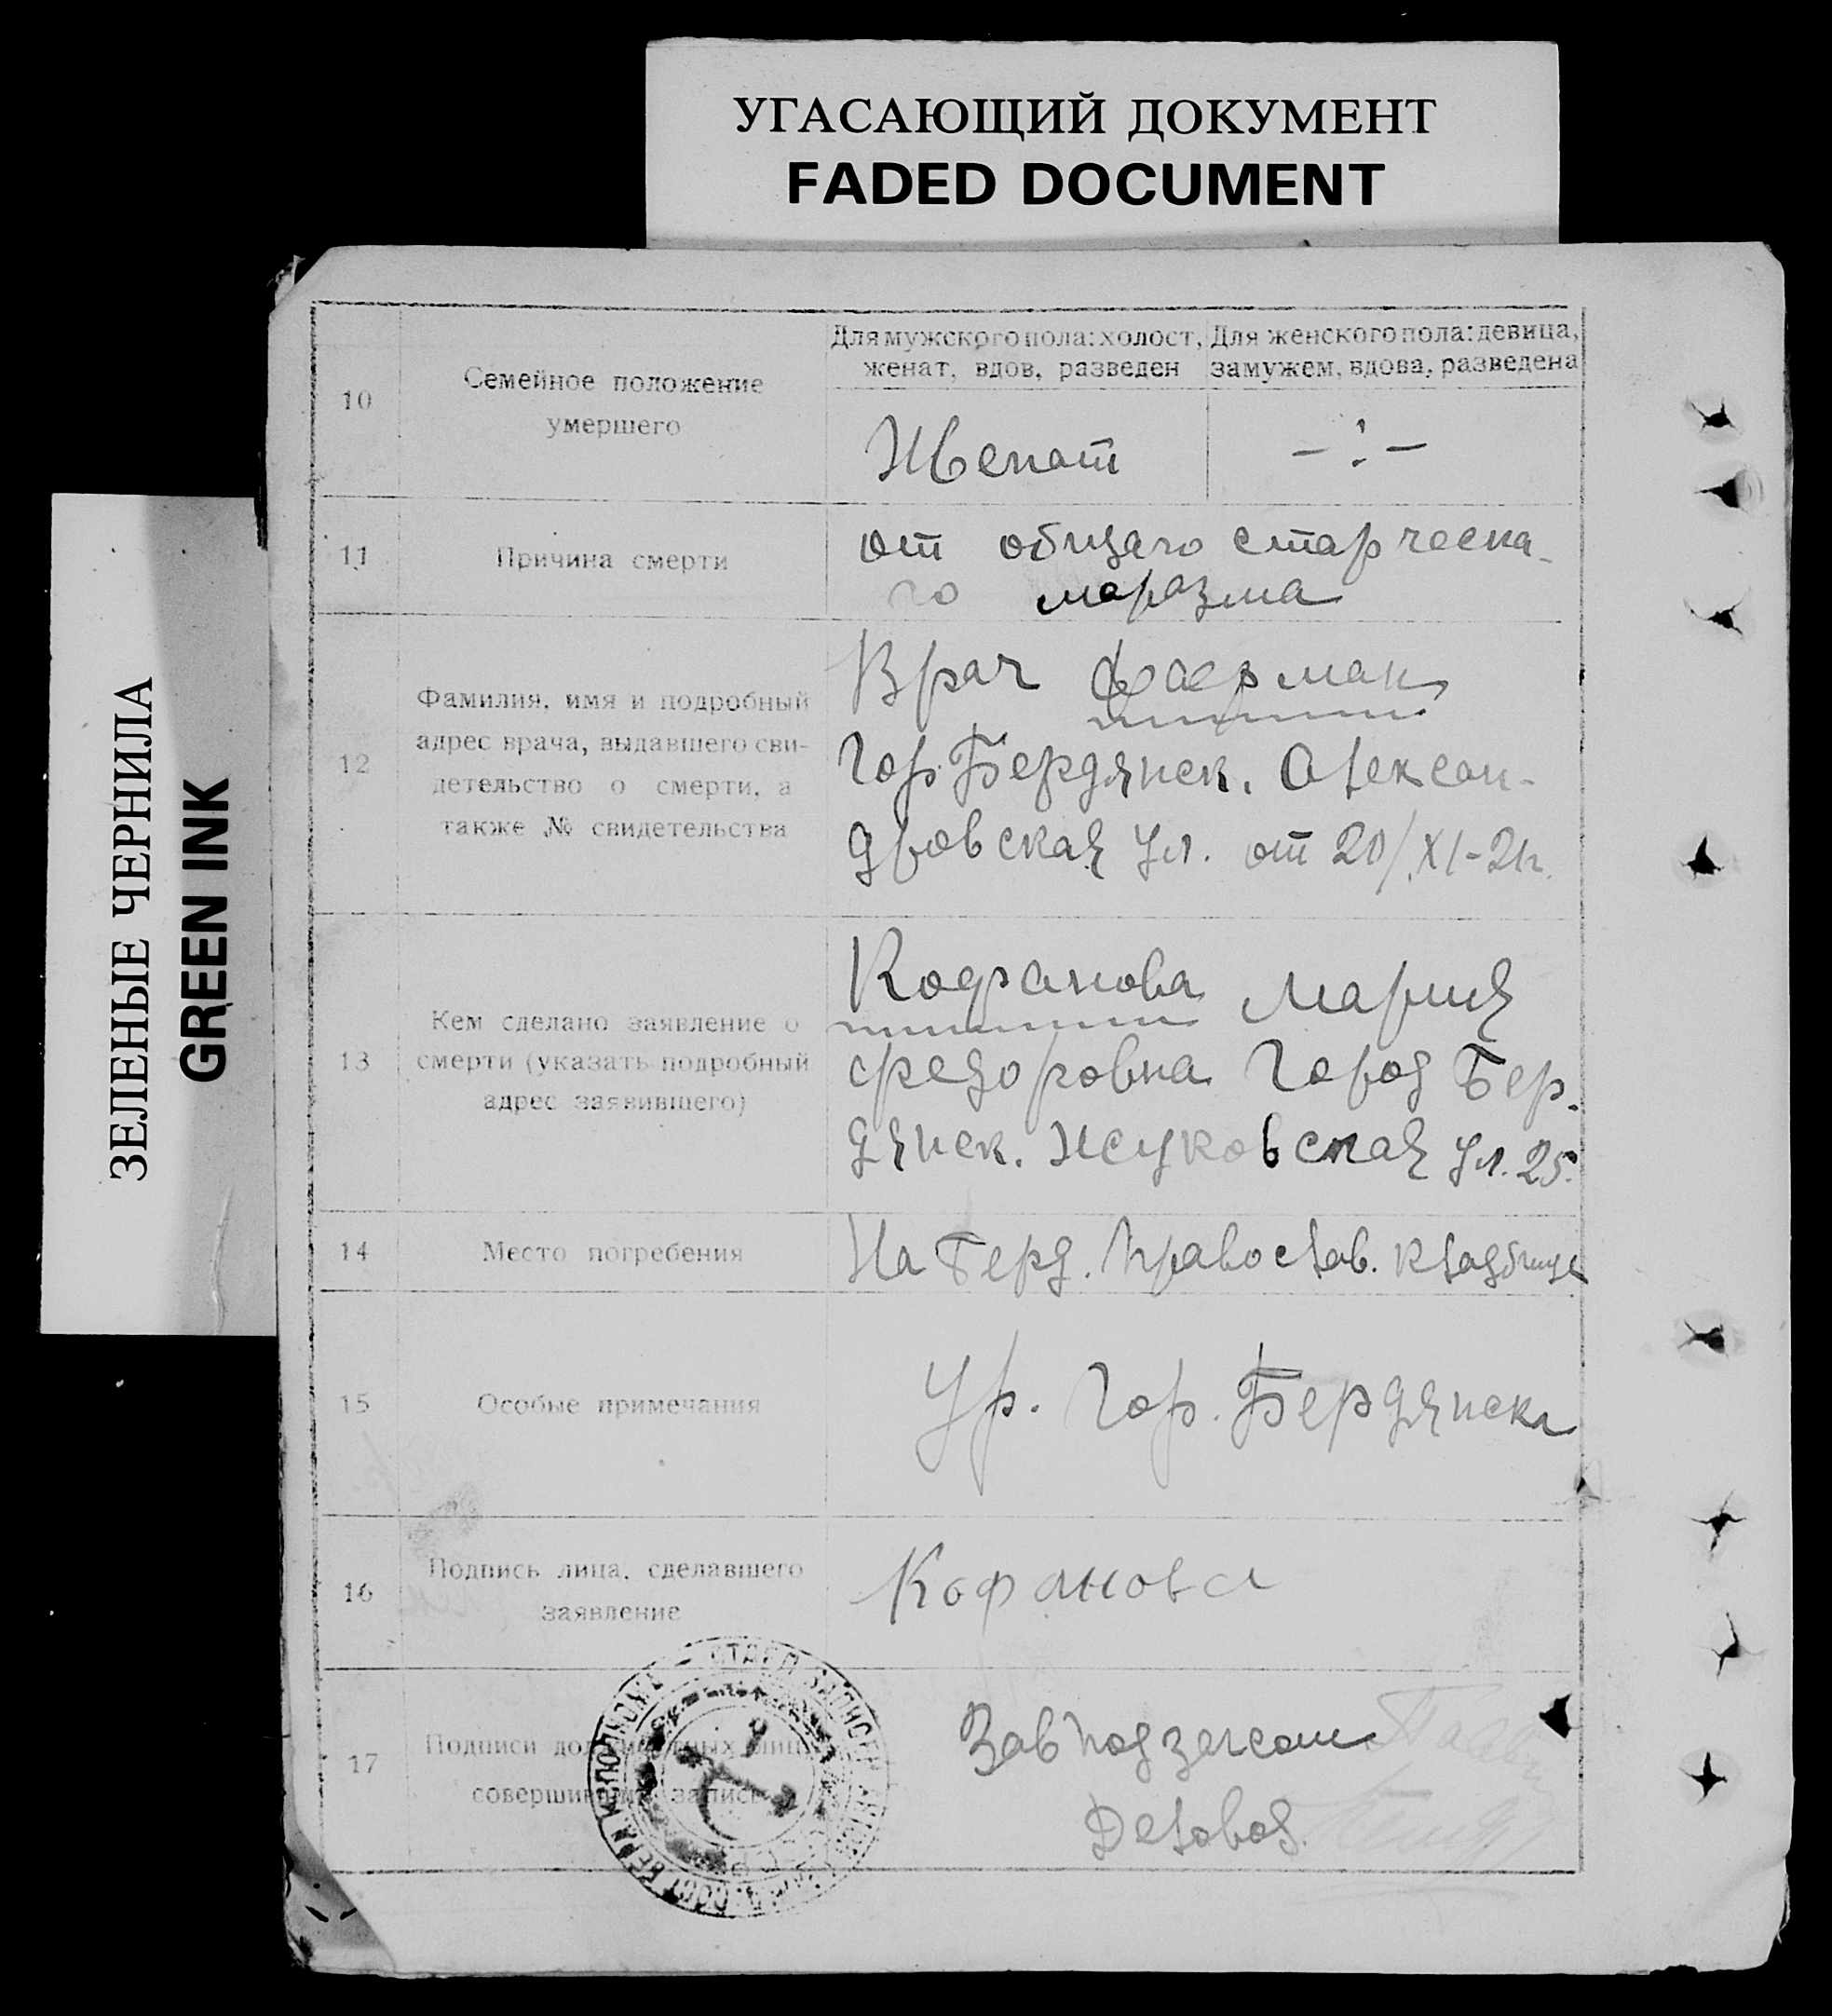 УГАСАЮЩИЙ ДОКУМЕНТ
FADED DOCUMENT
ЗЕЛЕНЫЕ ЧЕРНИЛА
GREEN INK
10
Семейное положение
умершего
Для мужского пола: холост,
женат, вдов, разведен
Для женского пола: девица,
замужем, вдова, разведена
Женат
— : —
11
Причина смерти
от общаго старческа-
го маразма
12
Фамилия, имя и подробный
адрес врача, выдавшего сви-
детельство о смерти, а
также № свидетельства
Врач
Гор. Бердянск. Алексан-
дровская ул. от 20/XI-21г.
13
Кем сделано заявление о
смерти (указать подробный
адрес заявившего)
Кофанова Мария
Федоровна Город Бер-
дянск. Жуковская ул. 25.
14
Место погребения
На Берд. Православ. кладбище
15
Особые примечания
Ур. Гор. Бердянска
16
Подпись лица, сделавшего
заявление
Кофанова
17
Подписи должностных лиц,
совершивших запись
Завподзагсом